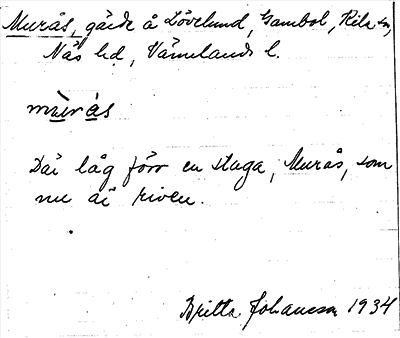 Murås, gärde å Lövelund, Gambol, Kila sn,
Näs hd, Värmlands l.
mùrás
Däi låg förr en stuga, Murås, som
nu äi riven.
Britta Johansson 1934